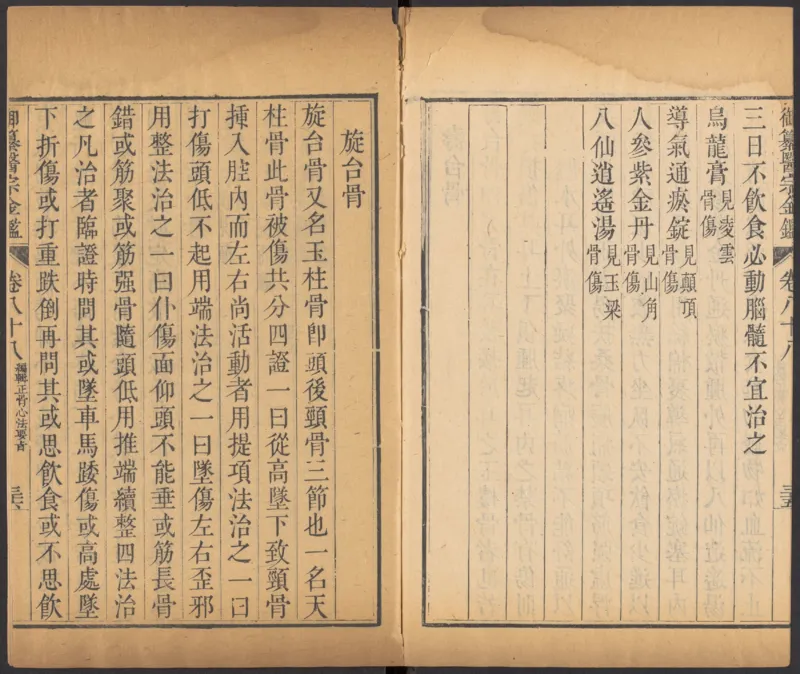 御纂醫宗金鑑
卷八十八
三五
三日不飲食必動腦髓不宜治之
烏龍膏見凌雲骨傷
導氣通瘀錠見顛頂骨傷
人參紫金丹見山角骨傷
八仙逍遙湯見玉梁骨傷
旋台骨
旋台骨又名玉柱骨卽頭後頸骨三節也一名天
柱骨此骨被傷共分四證一曰從高墜下致頸骨
挿入腔內而左右尚活動者用提項法治之一曰
打傷頭低不起用端法治之一曰墜傷左右歪邪
用整法治之一曰仆傷面仰頭不能垂或筋長骨
錯或筋聚或筋强骨隨頭低用推端續整四法治
之凡治者臨證時問其或墜車馬踒傷或高處墜
下折傷或打重跌倒再問其或思飲食或不思飲
御纂醫宗金鑑
卷八十八
編輯正骨心法要旨